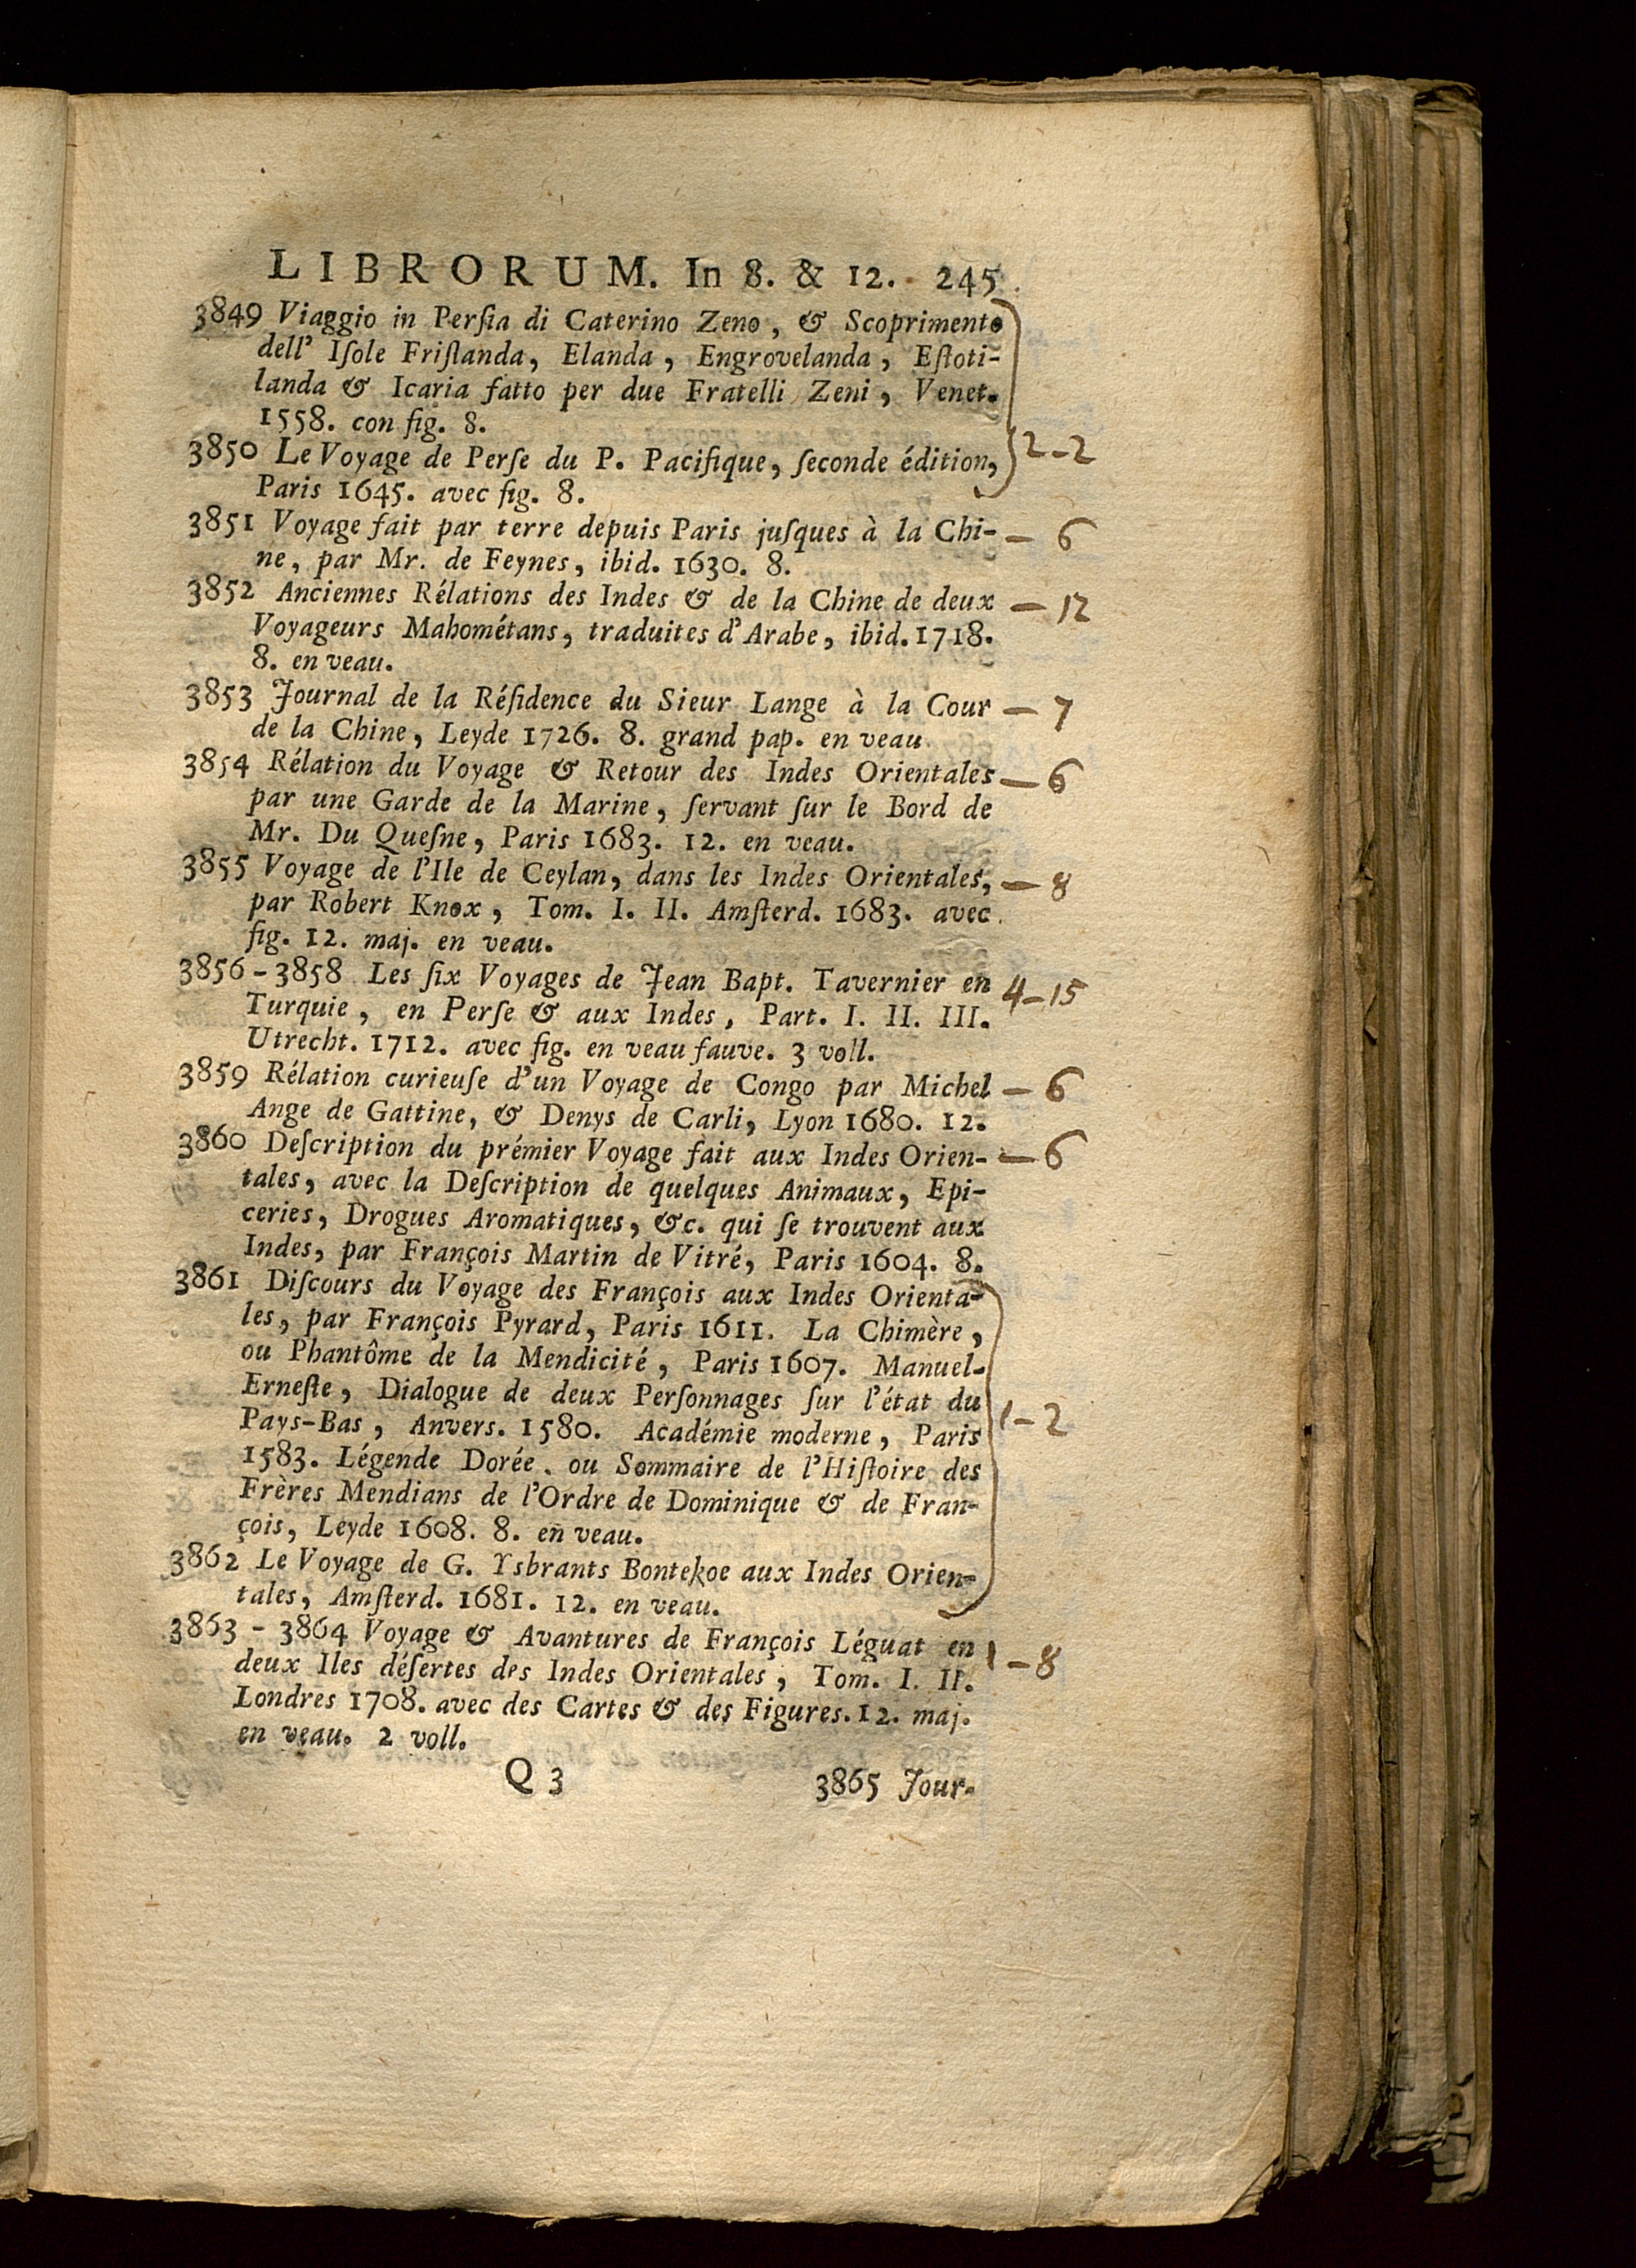 LIBRORUM. In 8. & 12. 245
3849 Viaggio in Perſia di Caterino Zeno, & Scoprimento
dell' Iſole Friſlanda, Elanda, Engrovelanda, Eſtoti-
landa & Icaria fatto per due Fratelli Zeni, Venet.
1558. con fig. 8.
3850 Le Voyage de Perſe du P. Pacifique, ſeconde édition, 2-2
Paris 1645. avec fig. 8.
3851 Voyage fait par terre depuis Paris juſques à la Chi- — 6
ne, par Mr. de Feynes, ibid. 1630. 8.
3852 Anciennes Rélations des Indes & de la Chine de deux — 12
Voyageurs Mahométans, traduites d'Arabe, ibid. 1718.
8. en veau.
3853 Journal de la Réſidence du Sieur Lange à la Cour — 7
de la Chine, Leyde 1726. 8. grand pap. en veau
3854 Rélation du Voyage & Retour des Indes Orientales — 6
par une Garde de la Marine, ſervant ſur le Bord de
Mr. Du Queſne, Paris 1683. 12. en veau.
3855 Voyage de l'Ile de Ceylan, dans les Indes Orientales, — 8
par Robert Knox, Tom. I. II. Amſterd. 1683. avec
fig. 12. maj. en veau.
3856-3858 Les ſix Voyages de Jean Bapt. Tavernier en 4-15
Turquie, en Perſe & aux Indes, Part. I. II. III.
Utrecht. 1712. avec fig. en veau fauve. 3 voll.
3859 Rélation curieuſe d'un Voyage de Congo par Michel — 6
Ange de Gattine, & Denys de Carli, Lyon 1680. 12.
3860 Deſcription du prémier Voyage fait aux Indes Orien- — 6
tales, avec la Deſcription de quelques Animaux, Epi-
ceries, Drogues Aromatiques, &c. qui ſe trouvent aux
Indes, par François Martin de Vitré, Paris 1604. 8.
3861 Diſcours du Voyage des François aux Indes Orienta-
les, par François Pyrard, Paris 1611. La Chimère,
ou Phantôme de la Mendicité, Paris 1607. Manuel-
Erneſte, Dialogue de deux Perſonnages ſur l'état du
Pays-Bas, Anvers. 1580. Académie moderne, Paris 1-2
1583. Légende Dorée, ou Sommaire de l'Hiſtoire des
Frères Mendians de l'Ordre de Dominique & de Fran-
çois, Leyde 1608. 8. en veau.
3862 Le Voyage de G. Ysbrants Bontekoe aux Indes Orien-
tales, Amſterd. 1681. 12. en veau.
3863 - 3864 Voyage & Avantures de François Léguat en 1-8
deux Iles déſertes des Indes Orientales, Tom. I. II.
Londres 1708. avec des Cartes & des Figures. 12. maj.
en veau. 2 voll.
Q 3 3865 Jour-